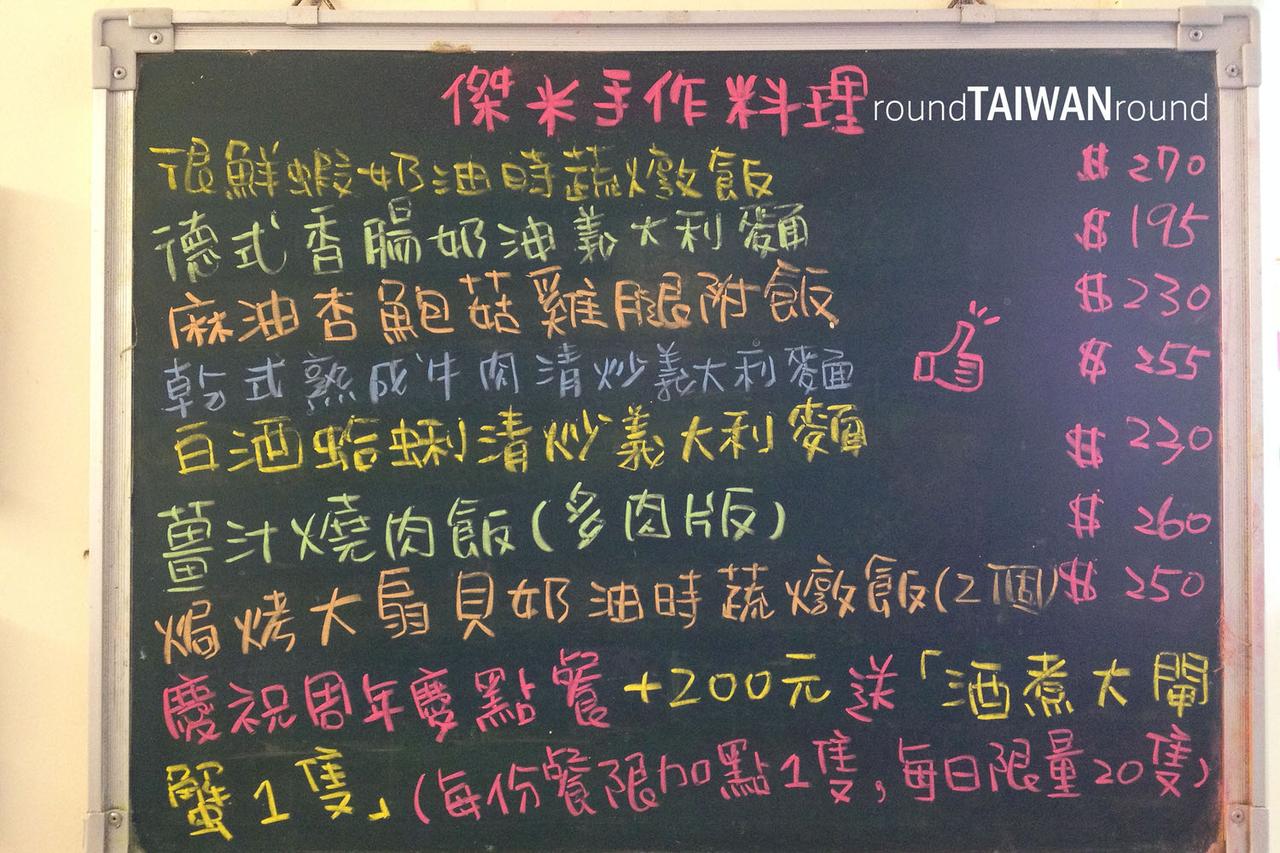 傑米手作料理
roundTAIWANround
很鮮蝦奶油時蔬燉飯 $270
德式香腸奶油義大利麵 $195
麻油杏鮑菇雞腿附飯 $230
乾式熟成牛肉清炒義大利麵 $255
白酒蛤蜊清炒義大利麵 $230
薑汁燒肉飯(多肉版) $260
焗烤大扇貝奶油時蔬燉飯(2個) $250
慶祝周年慶點餐+200元送「酒煮大閘
蟹1隻」(每份餐限加點1隻,每日限量20隻)